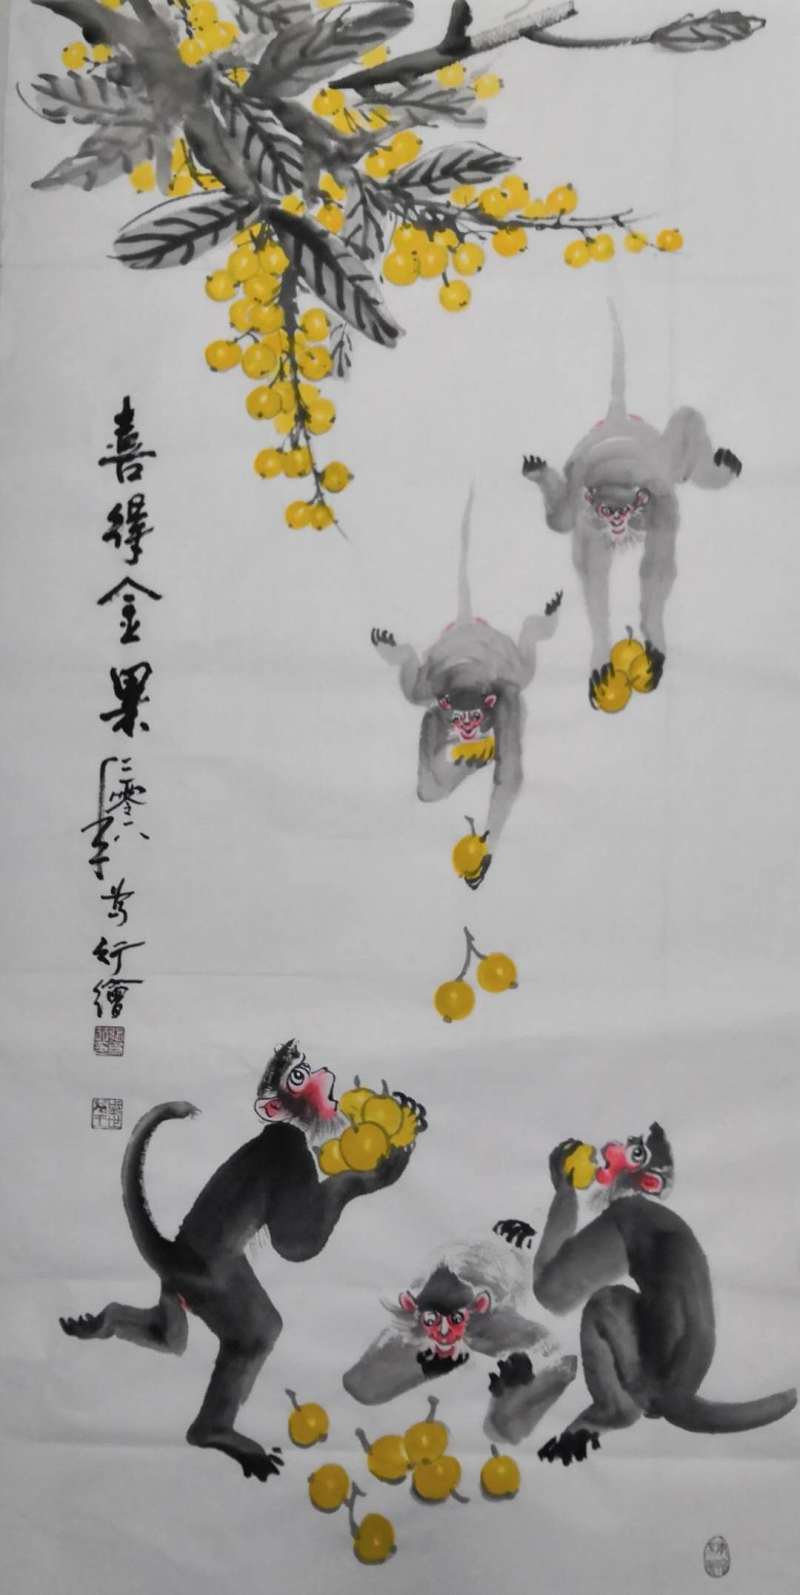 喜得金果
二零一八年
行繪